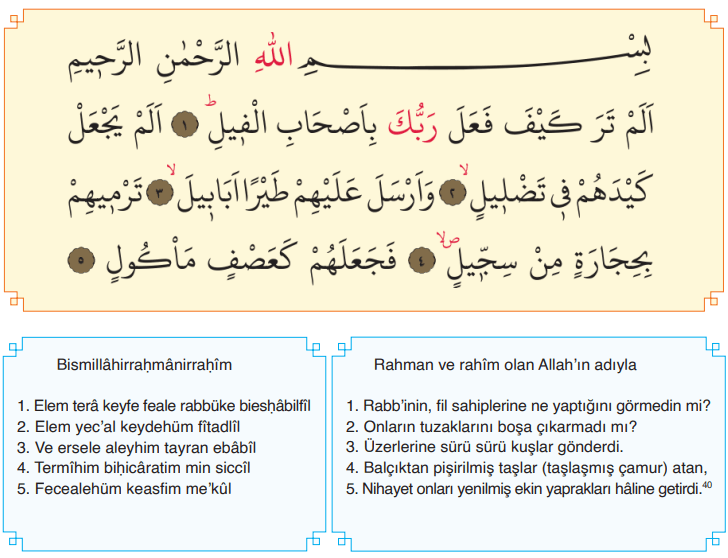 بِسْمِ اللّٰهِ الرَّحْمٰنِ الرَّحٖيمِ
اَلَمْ تَرَ كَيْفَ فَعَلَ رَبُّكَ بِاَصْحَابِ الْفٖيلِۜ ﴿١﴾ اَلَمْ يَجْعَلْ
كَيْدَهُمْ فٖي تَضْلٖيلٍۙ ﴿٢﴾ وَاَرْسَلَ عَلَيْهِمْ طَيْرًا اَبَابٖيلَۙ ﴿٣﴾ تَرْمٖيهِمْ
بِحِجَارَةٍ مِنْ سِجّٖيلٍۖۙ ﴿٤﴾ فَجَعَلَهُمْ كَعَصْفٍ مَاْكُولٍ ﴿٥﴾
Bismillâhirraḥmânirraḥîm
1. Elem terâ keyfe feale rabbüke biesḥâbilfîl
2. Elem yec’al keydehüm fîtadlîl
3. Ve ersele aleyhim tayran ebâbîl
4. Termîhim biḥicâratim min siccîl
5. Fecealehüm keasfim me’kûl
Rahman ve rahîm olan Allah’ın adıyla
1. Rabb’inin, fil sahiplerine ne yaptığını görmedin mi?
2. Onların tuzaklarını boşa çıkarmadı mı?
3. Üzerlerine sürü sürü kuşlar gönderdi.
4. Balçıktan pişirilmiş taşlar (taşlaşmış çamur) atan,
5. Nihayet onları yenilmiş ekin yaprakları hâline getirdi.⁴⁰